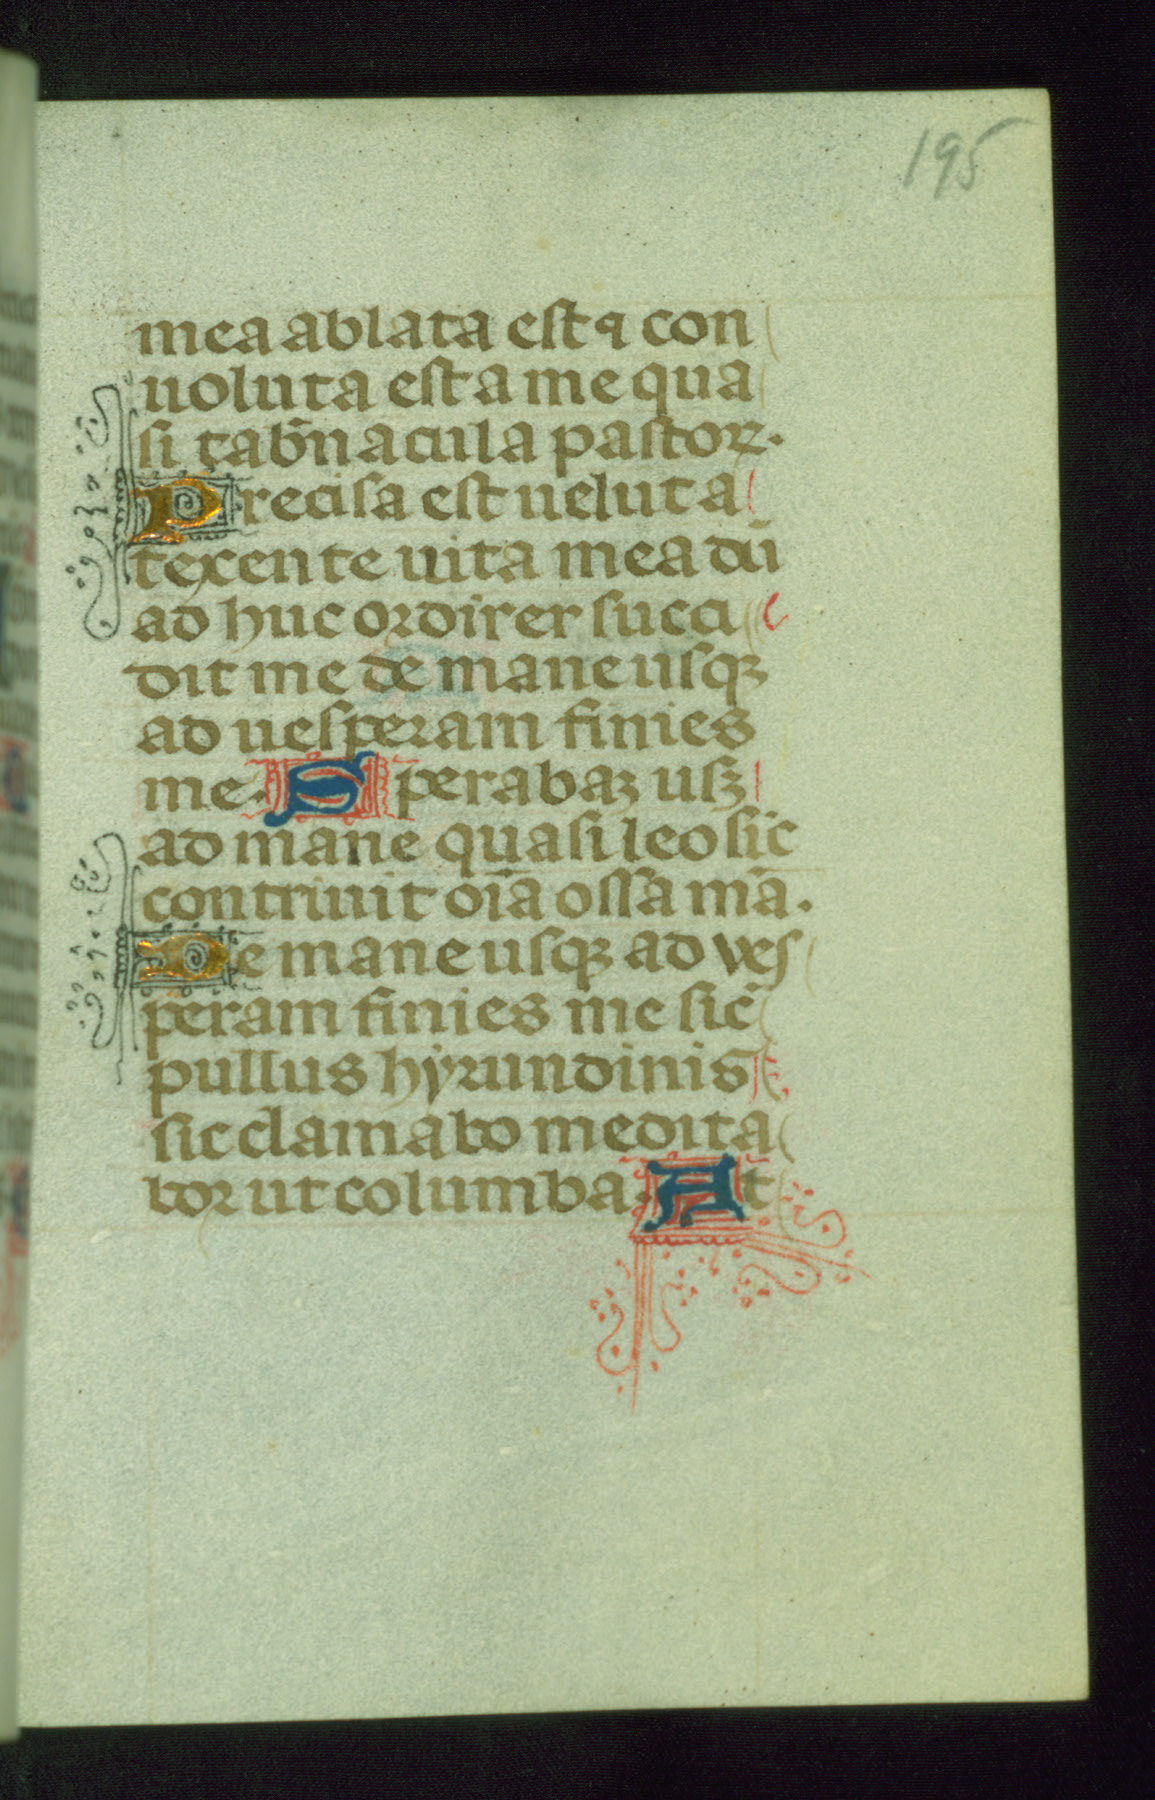 195
mea ablata est ⁊ con
uoluta est a me qua
si tab̄nacula pastoꝝ.
Precisa est uelut a
texente uita mea dū
ad huc ordirer succi
dit me de mane usqꝫ
ad uesperam finies
me. Sperabaꝫ usqꝫ
ad mane quasi leo sic̄
contriuit oīa ossa m̄a.
De mane usqꝫ ad ves
peram finies me sic̄
pullus hyrundinis
sic clamabo medita
bor ut columba. At